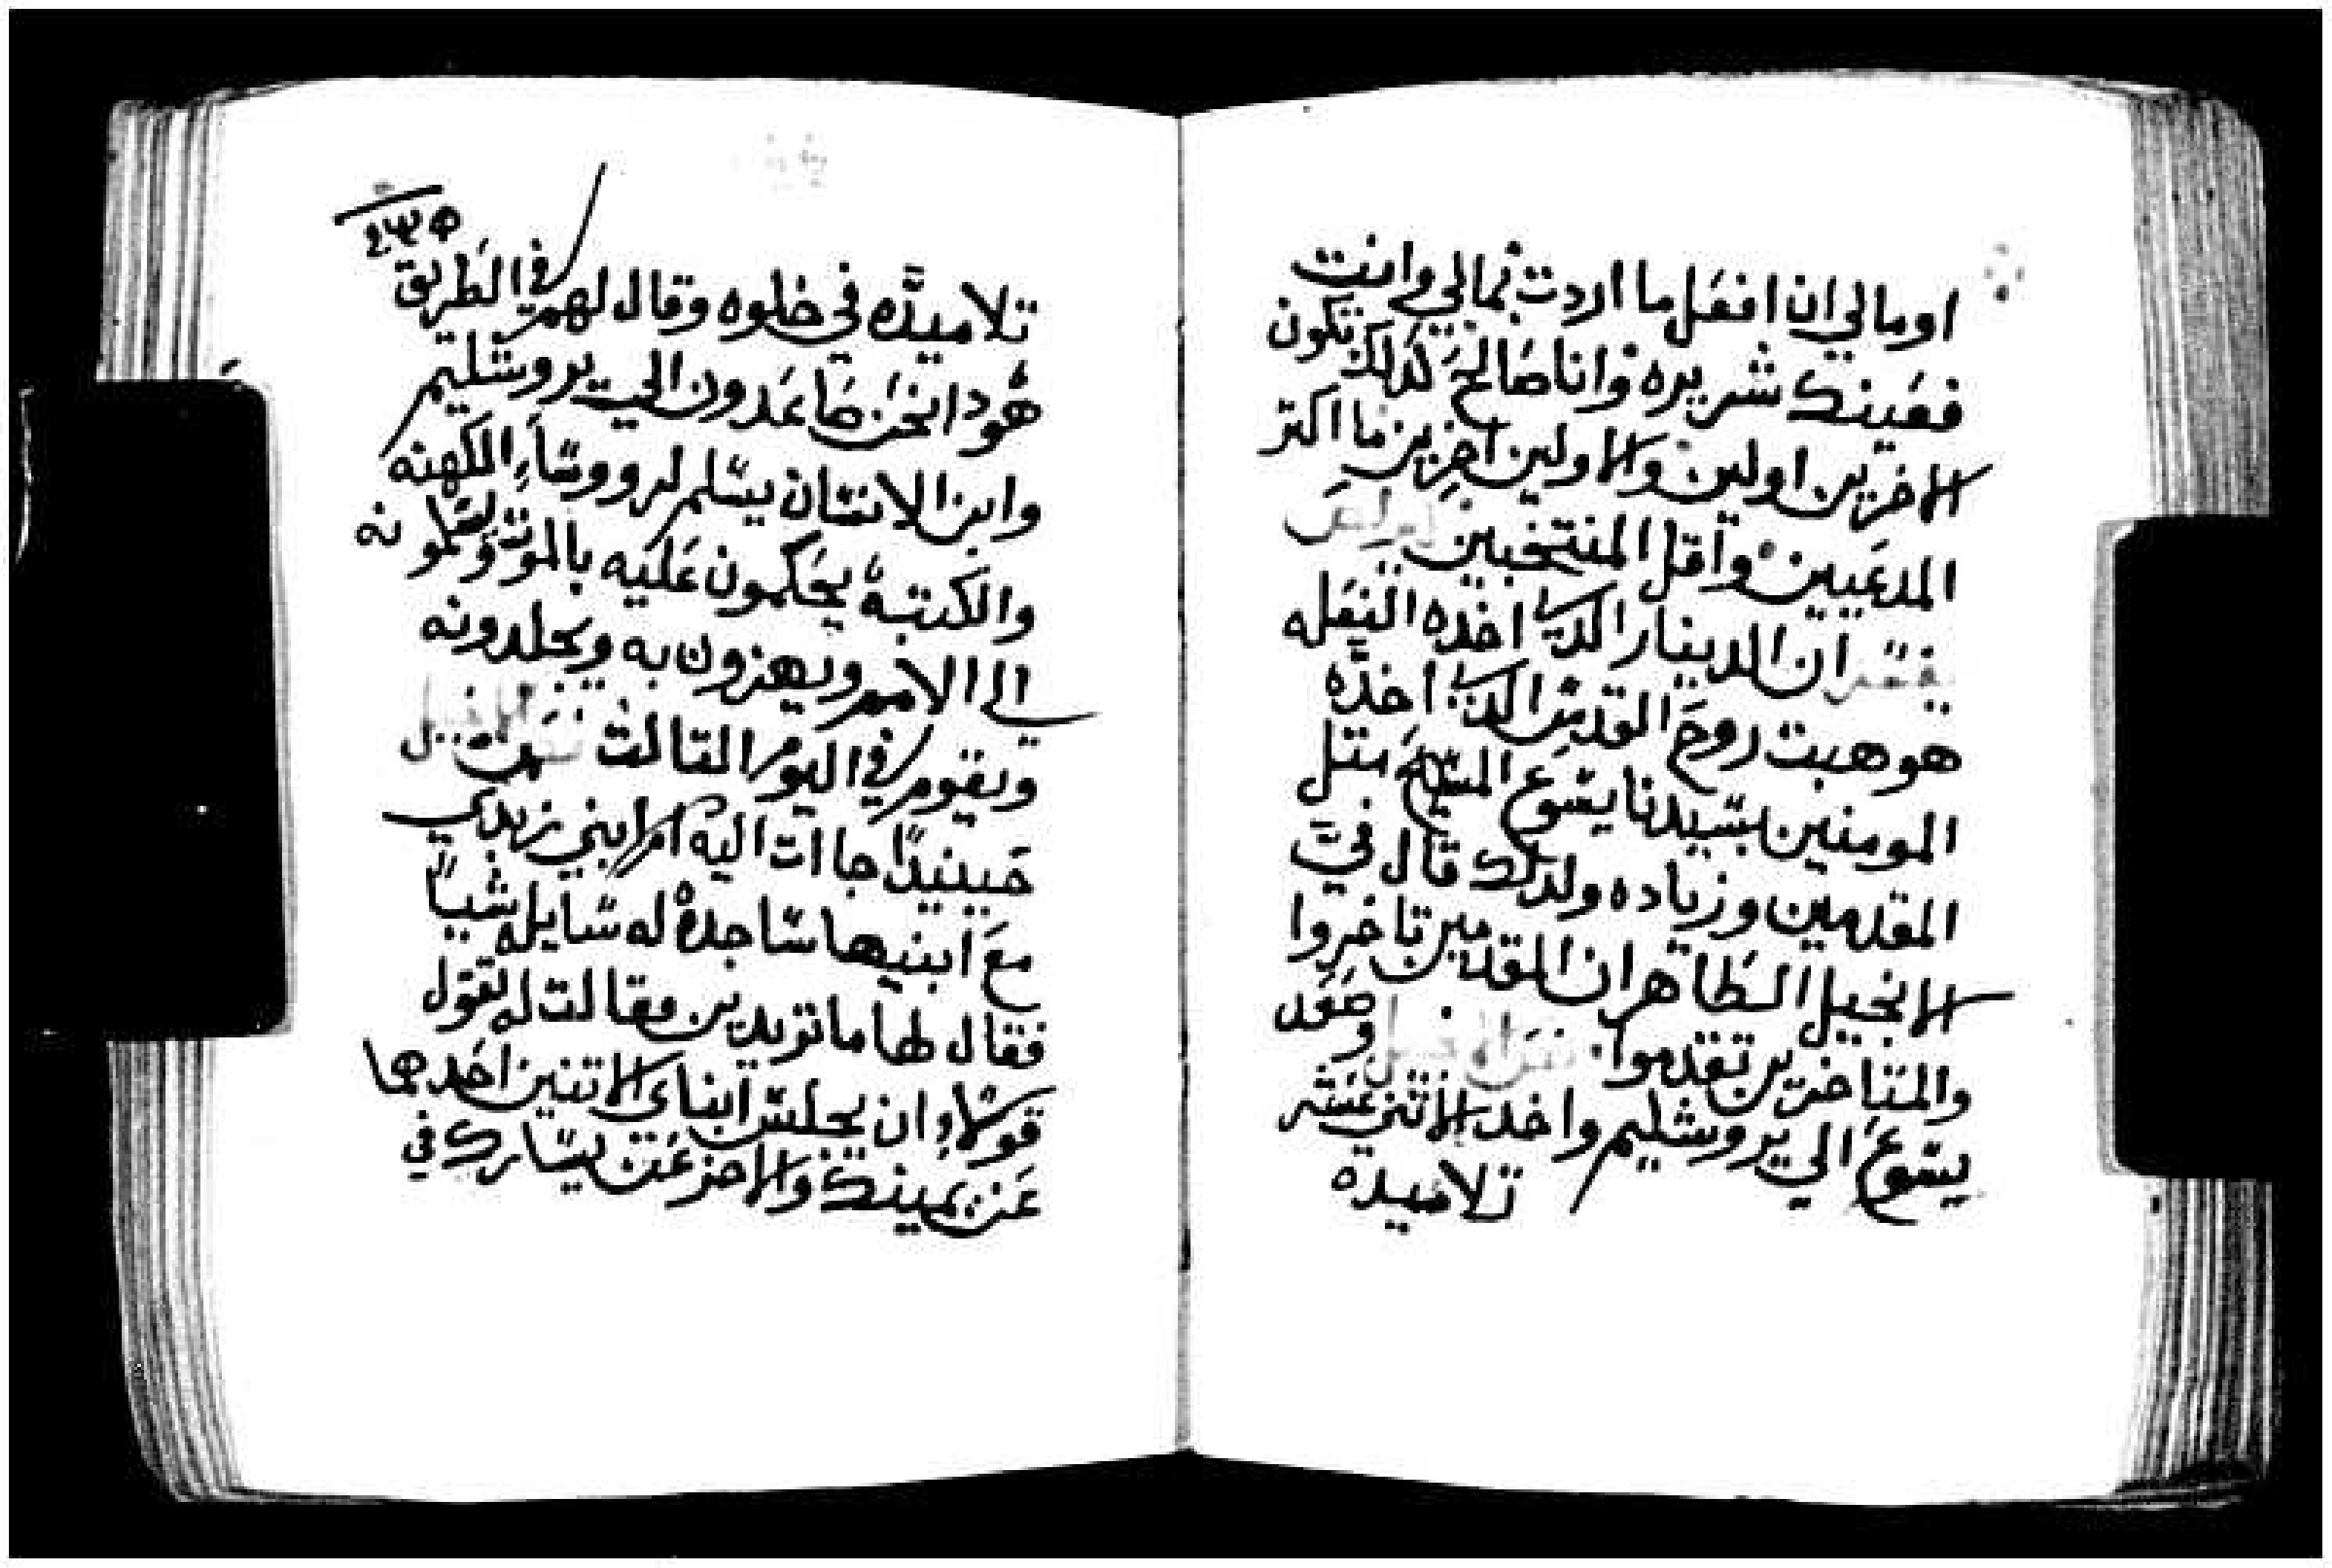 اومالي ان افعل ما اردت بمالي وانت
فعينك شريره وانا صالح كدلك تكون
الاخرين اولين والاولين اخرين ما اكتر
المدعيين واقل المنتخبين
يفسر ان الدينار الدي اخده الفعله
هو هبت روح القدس الدي اخده
المومنين بسيدنا يسوع المسيح متل
المقدمين وزياده ولدلك قال في
الانجيل الطاهر ان المقدمين تاخروا
والمتاخرين تقدموا وصعد
يسوع الي يروشليم واخد الاتني عشر
تلاميده
تلاميده في خلوه وقال لهم في الطريق
هودا نحن صاعدون الي يروشليم
وابن الانسان يسلم لرووساء الكهنه
والكتبة يحكمون عليه بالموت ويسلمونه
الي الامم ويهزون به ويجلدونه
ويقوم في اليوم التالت
حينيدا جاات اليه ام ابني زبدي
مع ابنيها ساجدة له سايله شيا
فقال لها ما تريدين فقالت له تقول
قولا ان يجلس ابناي الاتنين احدهما
عن يمينك والاخر عن يسارك في